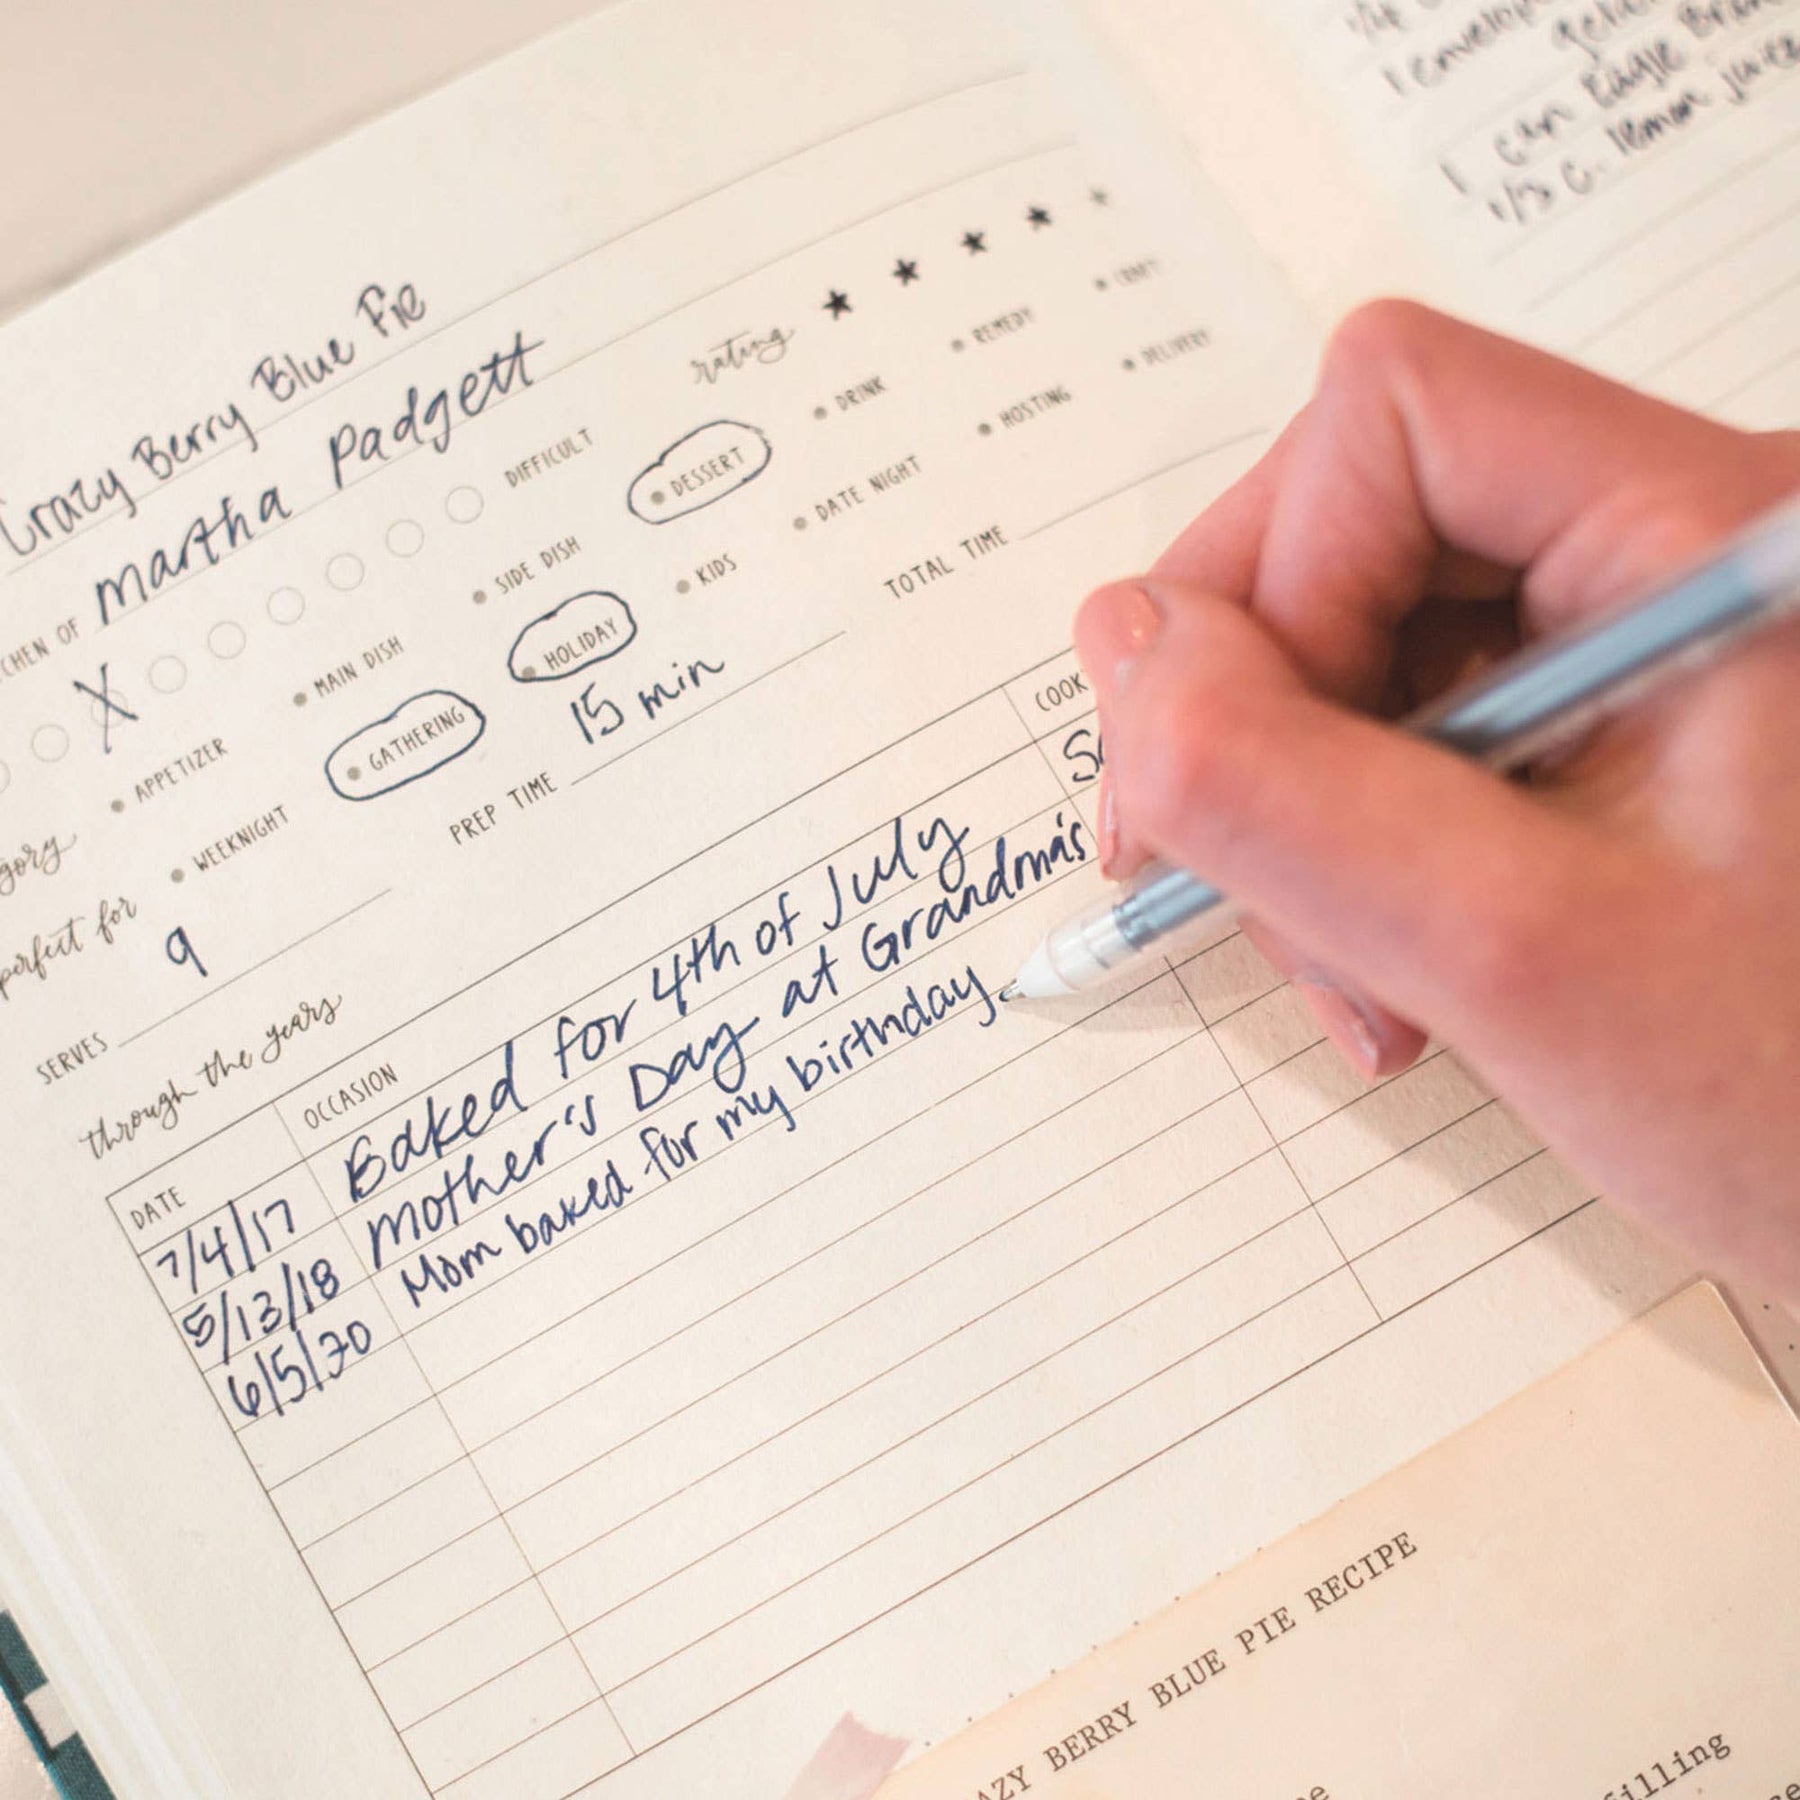 Crazy Berry Blue Pie
CHEN OF Martha Padgett
DIFFICULT
rating
APPETIZER MAIN DISH SIDE DISH DESSERT DRINK REMEDY CRAFT
perfect for WEEKNIGHT GATHERING HOLIDAY KIDS DATE NIGHT HOSTING DELIVERY
SERVES 9 PREP TIME 15 min TOTAL TIME
through the years
DATE OCCASION COOK
7/4/17 Baked for 4th of July
5/13/18 Mother's Day at Grandma's
6/5/20 Mom baked for my birthday.
1/4
1 envelope
1 can Eagle Bran
1/3 c. lemon juice
AZY BERRY BLUE PIE RECIPE
filling